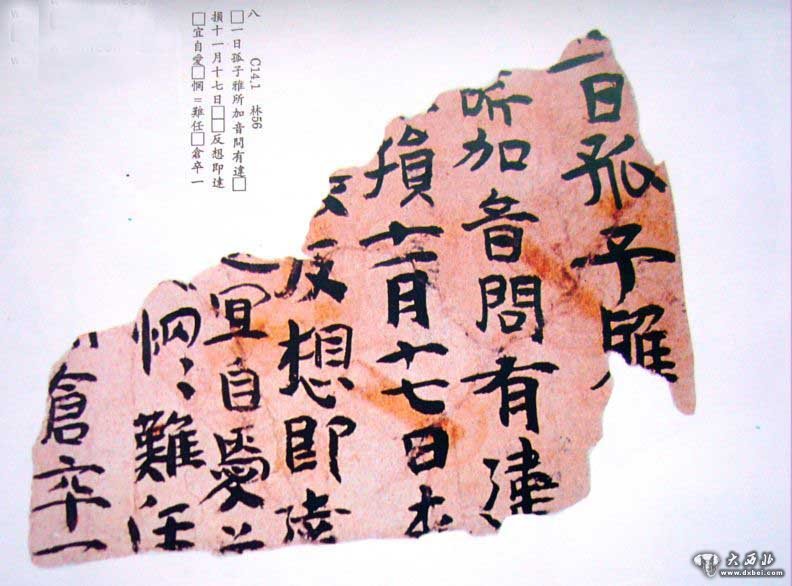 八 C14,1 林56
□一日孤子雅所加音問有違□
損十一月十七日□□反想即達
□宜自愛□惘=難任□倉卒一
一日孤子雅
所加音問有
損十一月十七日
反想即
宜自愛
惘〻難任
倉卒一
大西北
www.dxbei.com